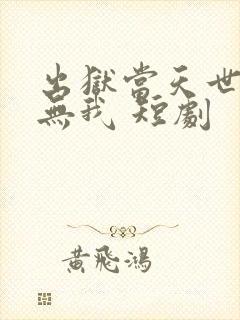 出獄當天世
無我 短劇
黃飛鴻